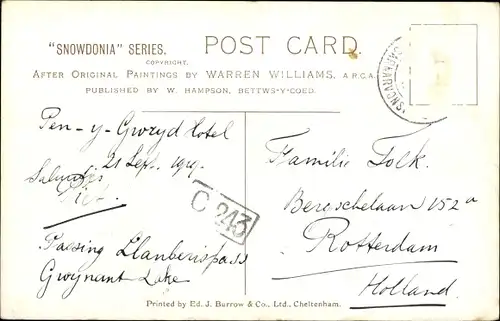 "SNOWDONIA" SERIES.
POST CARD.
COPYRIGHT.
AFTER ORIGINAL PAINTINGS BY WARREN WILLIAMS, A.R.C.A.
PUBLISHED BY W. HAMPSON, BETTWS-Y-COED.
Pen-y-Gwryd Hotel
21 Sept. 1919.
Piet.
Passing Llanberispass
Gwynant Lake
C 243
Familie Tolk.
Beroschelaan 152a
Rotterdam
Holland.
Printed by Ed. J. Burrow & Co., Ltd., Cheltenham.